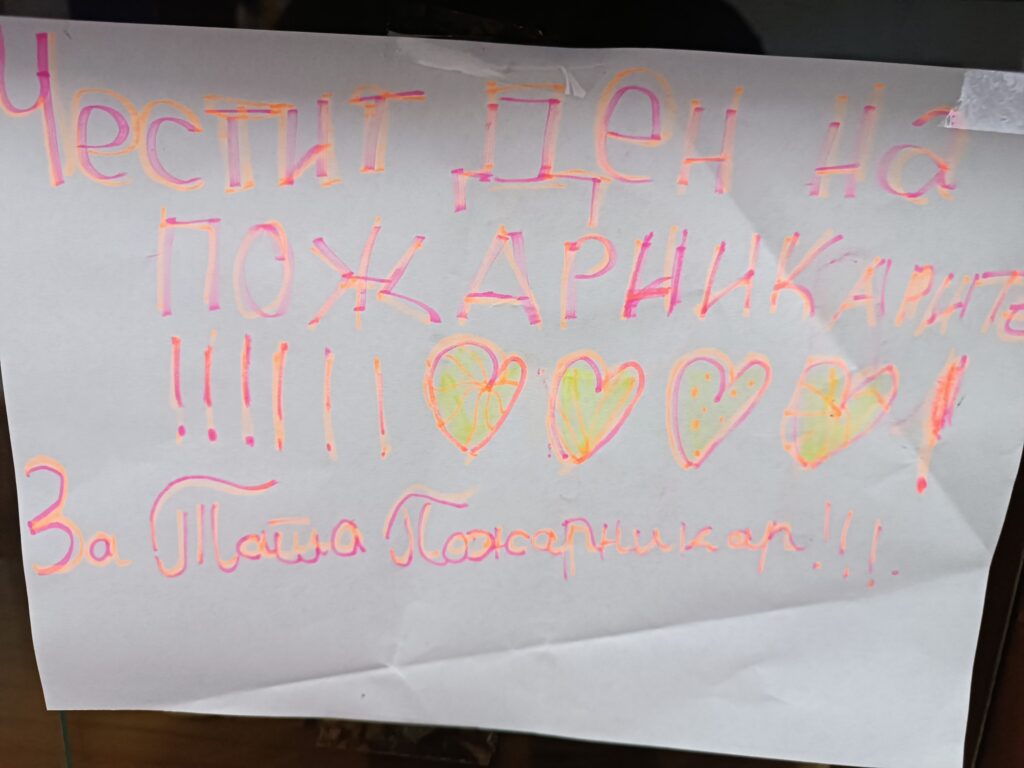 Честит Ден на
ПОЖАРНИКАРИТЕ
!!!!!!! !
За Татша Пожарникар!!!